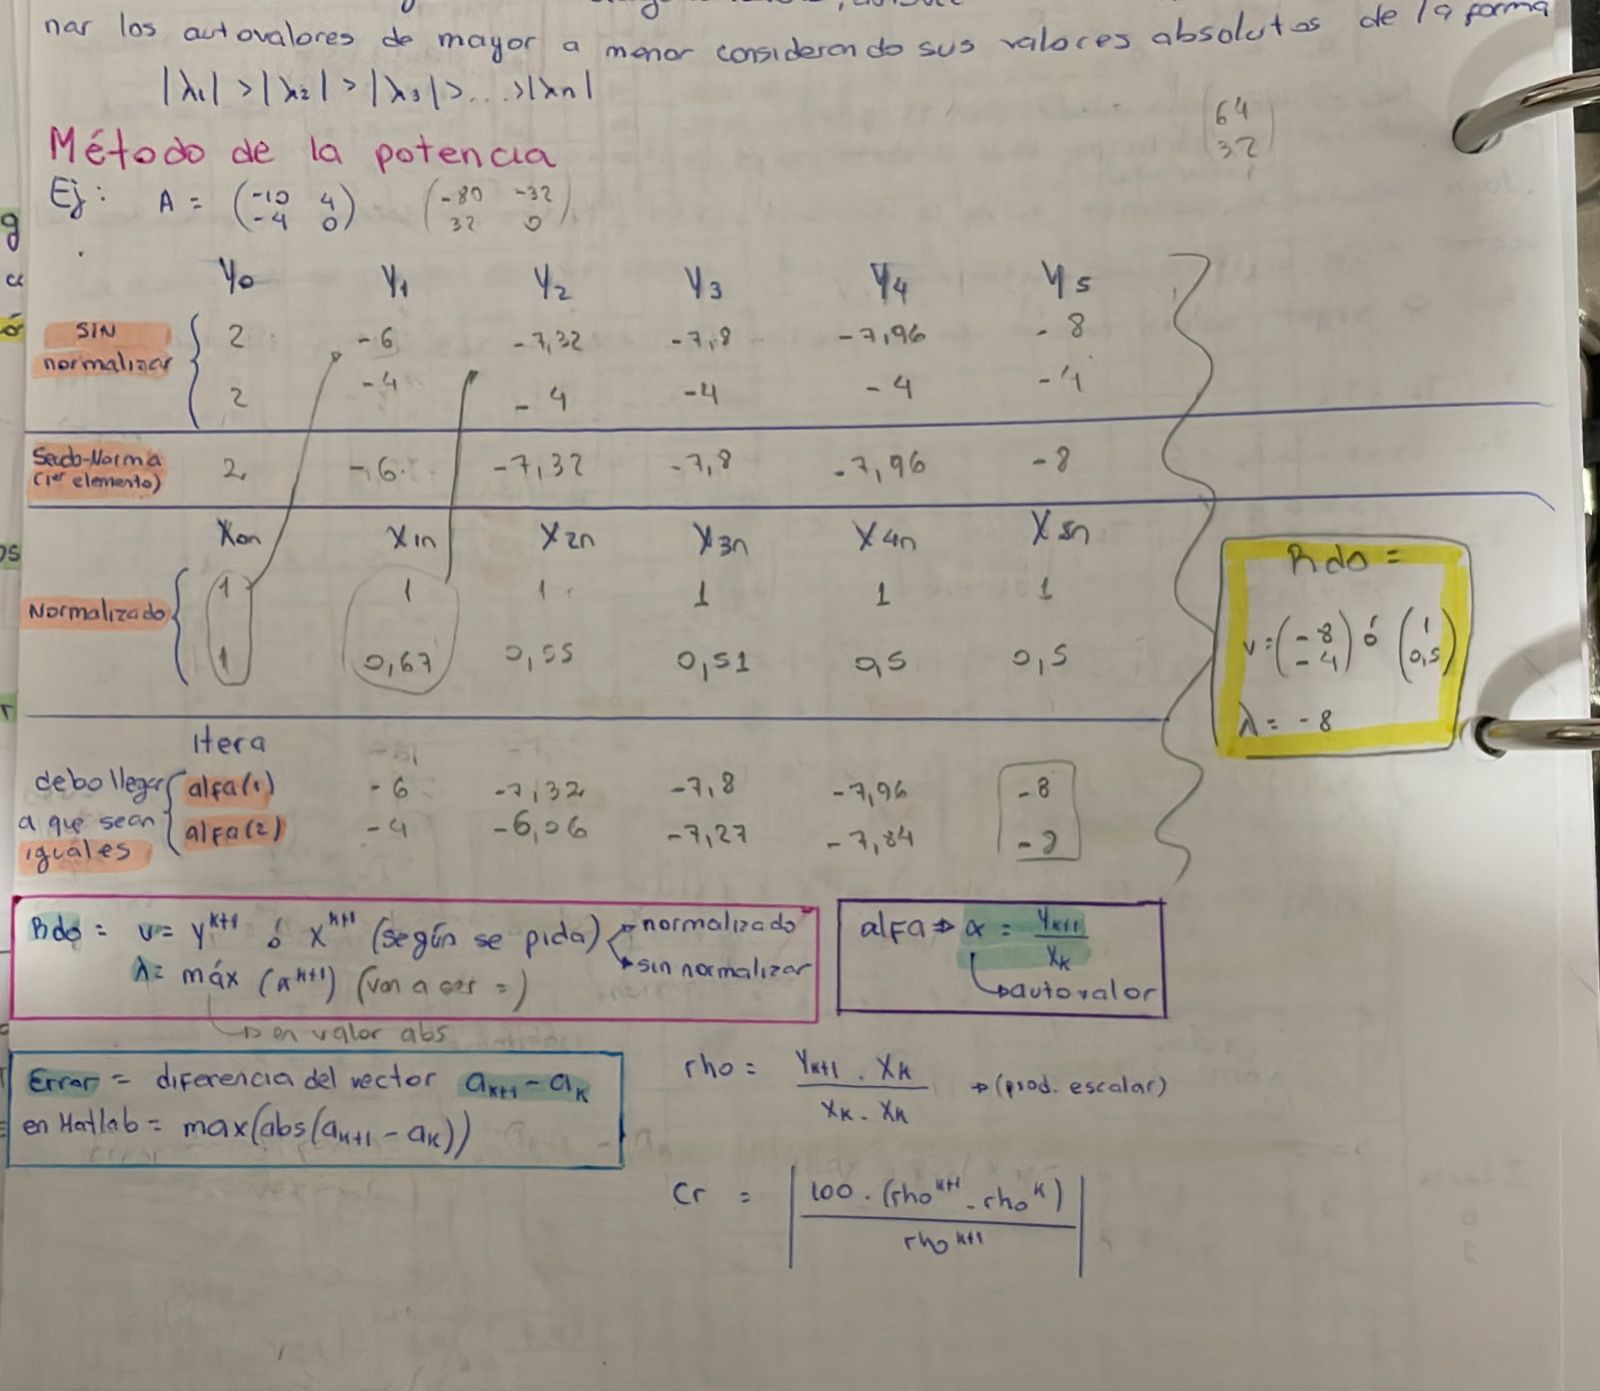 nar los autovalores de mayor a menor considerando sus valores absolutos de la forma
|λ1| > |λ2| > |λ3| > ... > |λn|
(64
32)
Método de la potencia
Ej: A = (-10 4
-4 0)
(-80 -32
32 0)
Y0 Y1 Y2 Y3 Y4 Y5
SIN
normalizar
2 -6 -7,32 -7,8 -7,96 -8
2 -4 -4 -4 -4 -4
Seudo-Norma
(1er elemento)
2 -6 -7,32 -7,8 -7,96 -8
X0n X1n X2n X3n X4n X5n
Normalizado
1 1 1 1 1 1
1 0,67 0,55 0,51 0,5 0,5
Rdo =
v = (-8
-4) ó (1
0,5)
λ = -8
Itera
debo llegar
a que sean
iguales
alfa(1) -6 -7,32 -7,8 -7,96 -8
alfa(2) -4 -6,06 -7,27 -7,84 -8
Rdo = v = Y^k+1 ó X^k+1 (según se pida) normalizado
sin normalizar
λ = máx (α^k+1) (van a ser =)
→ en valor abs
alfa ⇒ α = Yk+1 / Xk
→ autovalor
Error = diferencia del vector ak+1 - ak
en Matlab = max(abs(ak+1 - ak))
rho = Yk+1 . Xk / Xk . Xk → (prod. escalar)
Cr = | 100 . (rho^k+1 - rho^k) / rho^k+1 |